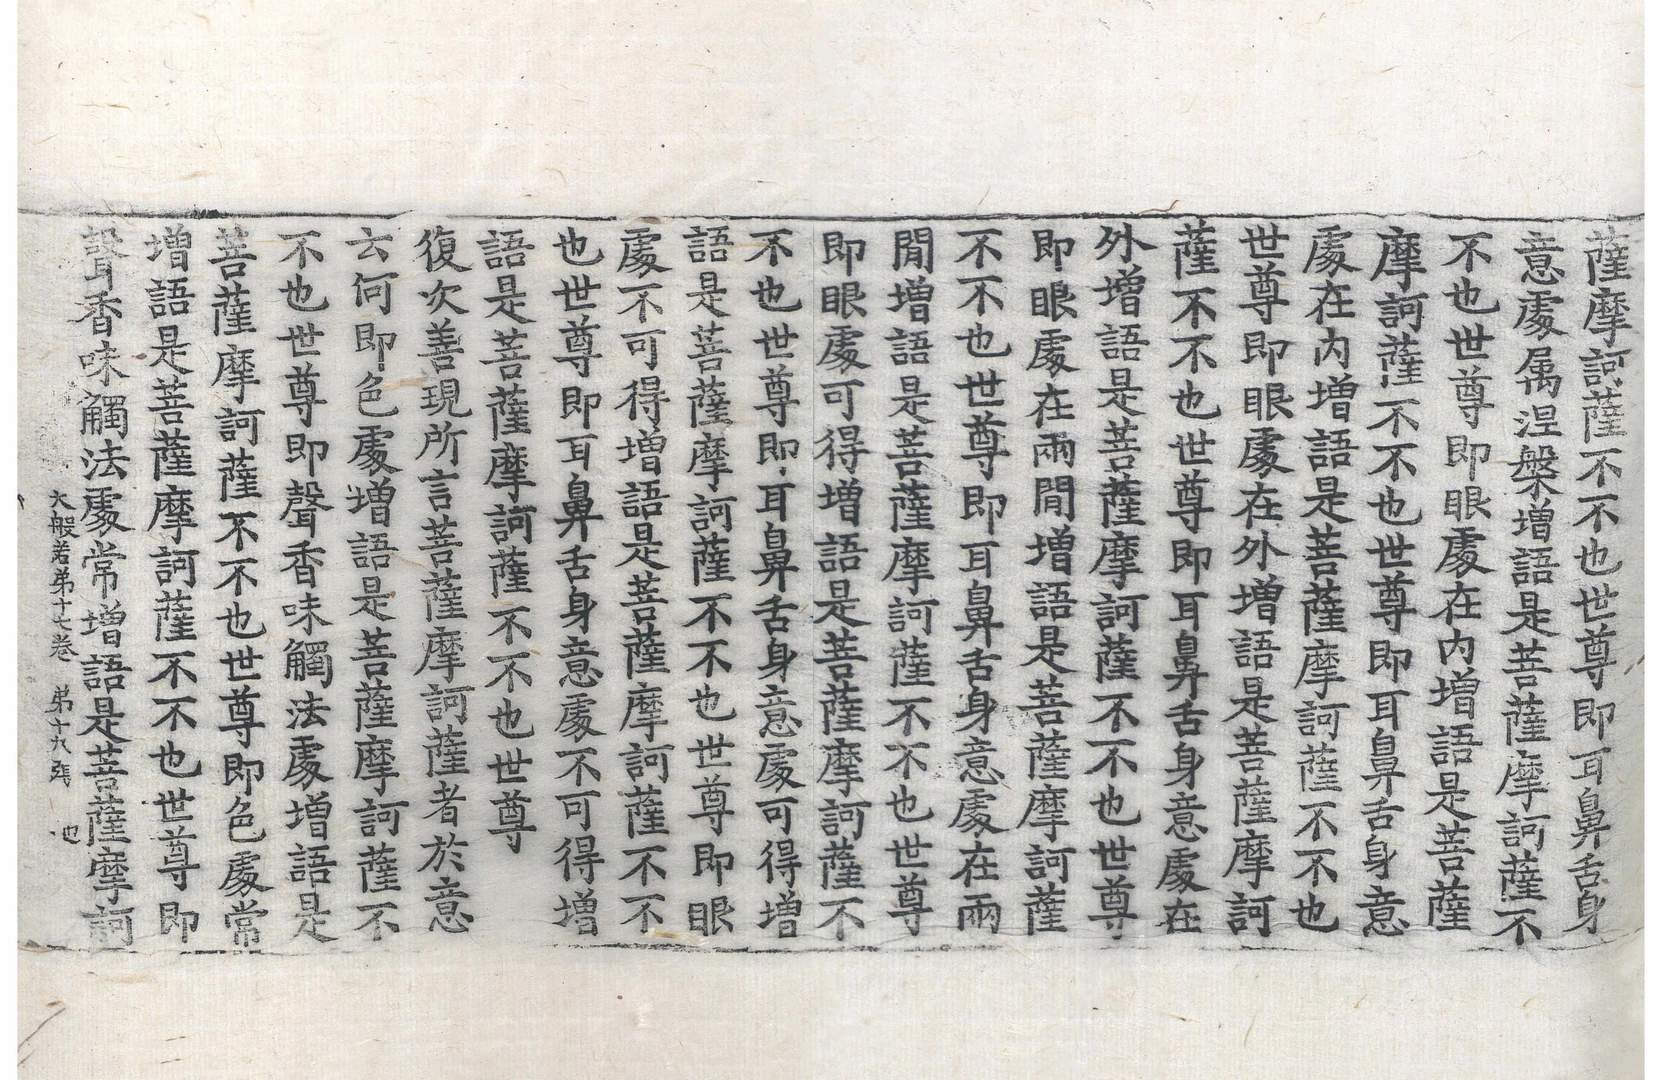 薩摩訶薩不不也世尊即耳鼻舌身
意處属涅槃增語是菩薩摩訶薩不
不也世尊即眼處在内增語是菩薩
摩訶薩不不也世尊即耳鼻舌身意
處在内增語是菩薩摩訶薩不不也
世尊即眼處在外增語是菩薩摩訶
薩不不也世尊即耳鼻舌身意處在
外增語是菩薩摩訶薩不不也世尊
即眼處在兩閒增語是菩薩摩訶薩
不不也世尊即耳鼻舌身意處在兩
閒增語是菩薩摩訶薩不不也世尊
即眼處可得增語是菩薩摩訶薩不
不也世尊即耳鼻舌身意處可得增
語是菩薩摩訶薩不不也世尊即眼
處不可得增語是菩薩摩訶薩不不
也世尊即耳鼻舌身意處不可得增
語是菩薩摩訶薩不不也世尊
復次善現所言菩薩摩訶薩者於意
云何即色處增語是菩薩摩訶薩不
不也世尊即聲香味觸法處增語是
菩薩摩訶薩不不也世尊即色處常
增語是菩薩摩訶薩不不也世尊即
聲香味觸法處常增語是菩薩摩訶
大般若苐十七卷 苐十九張 也